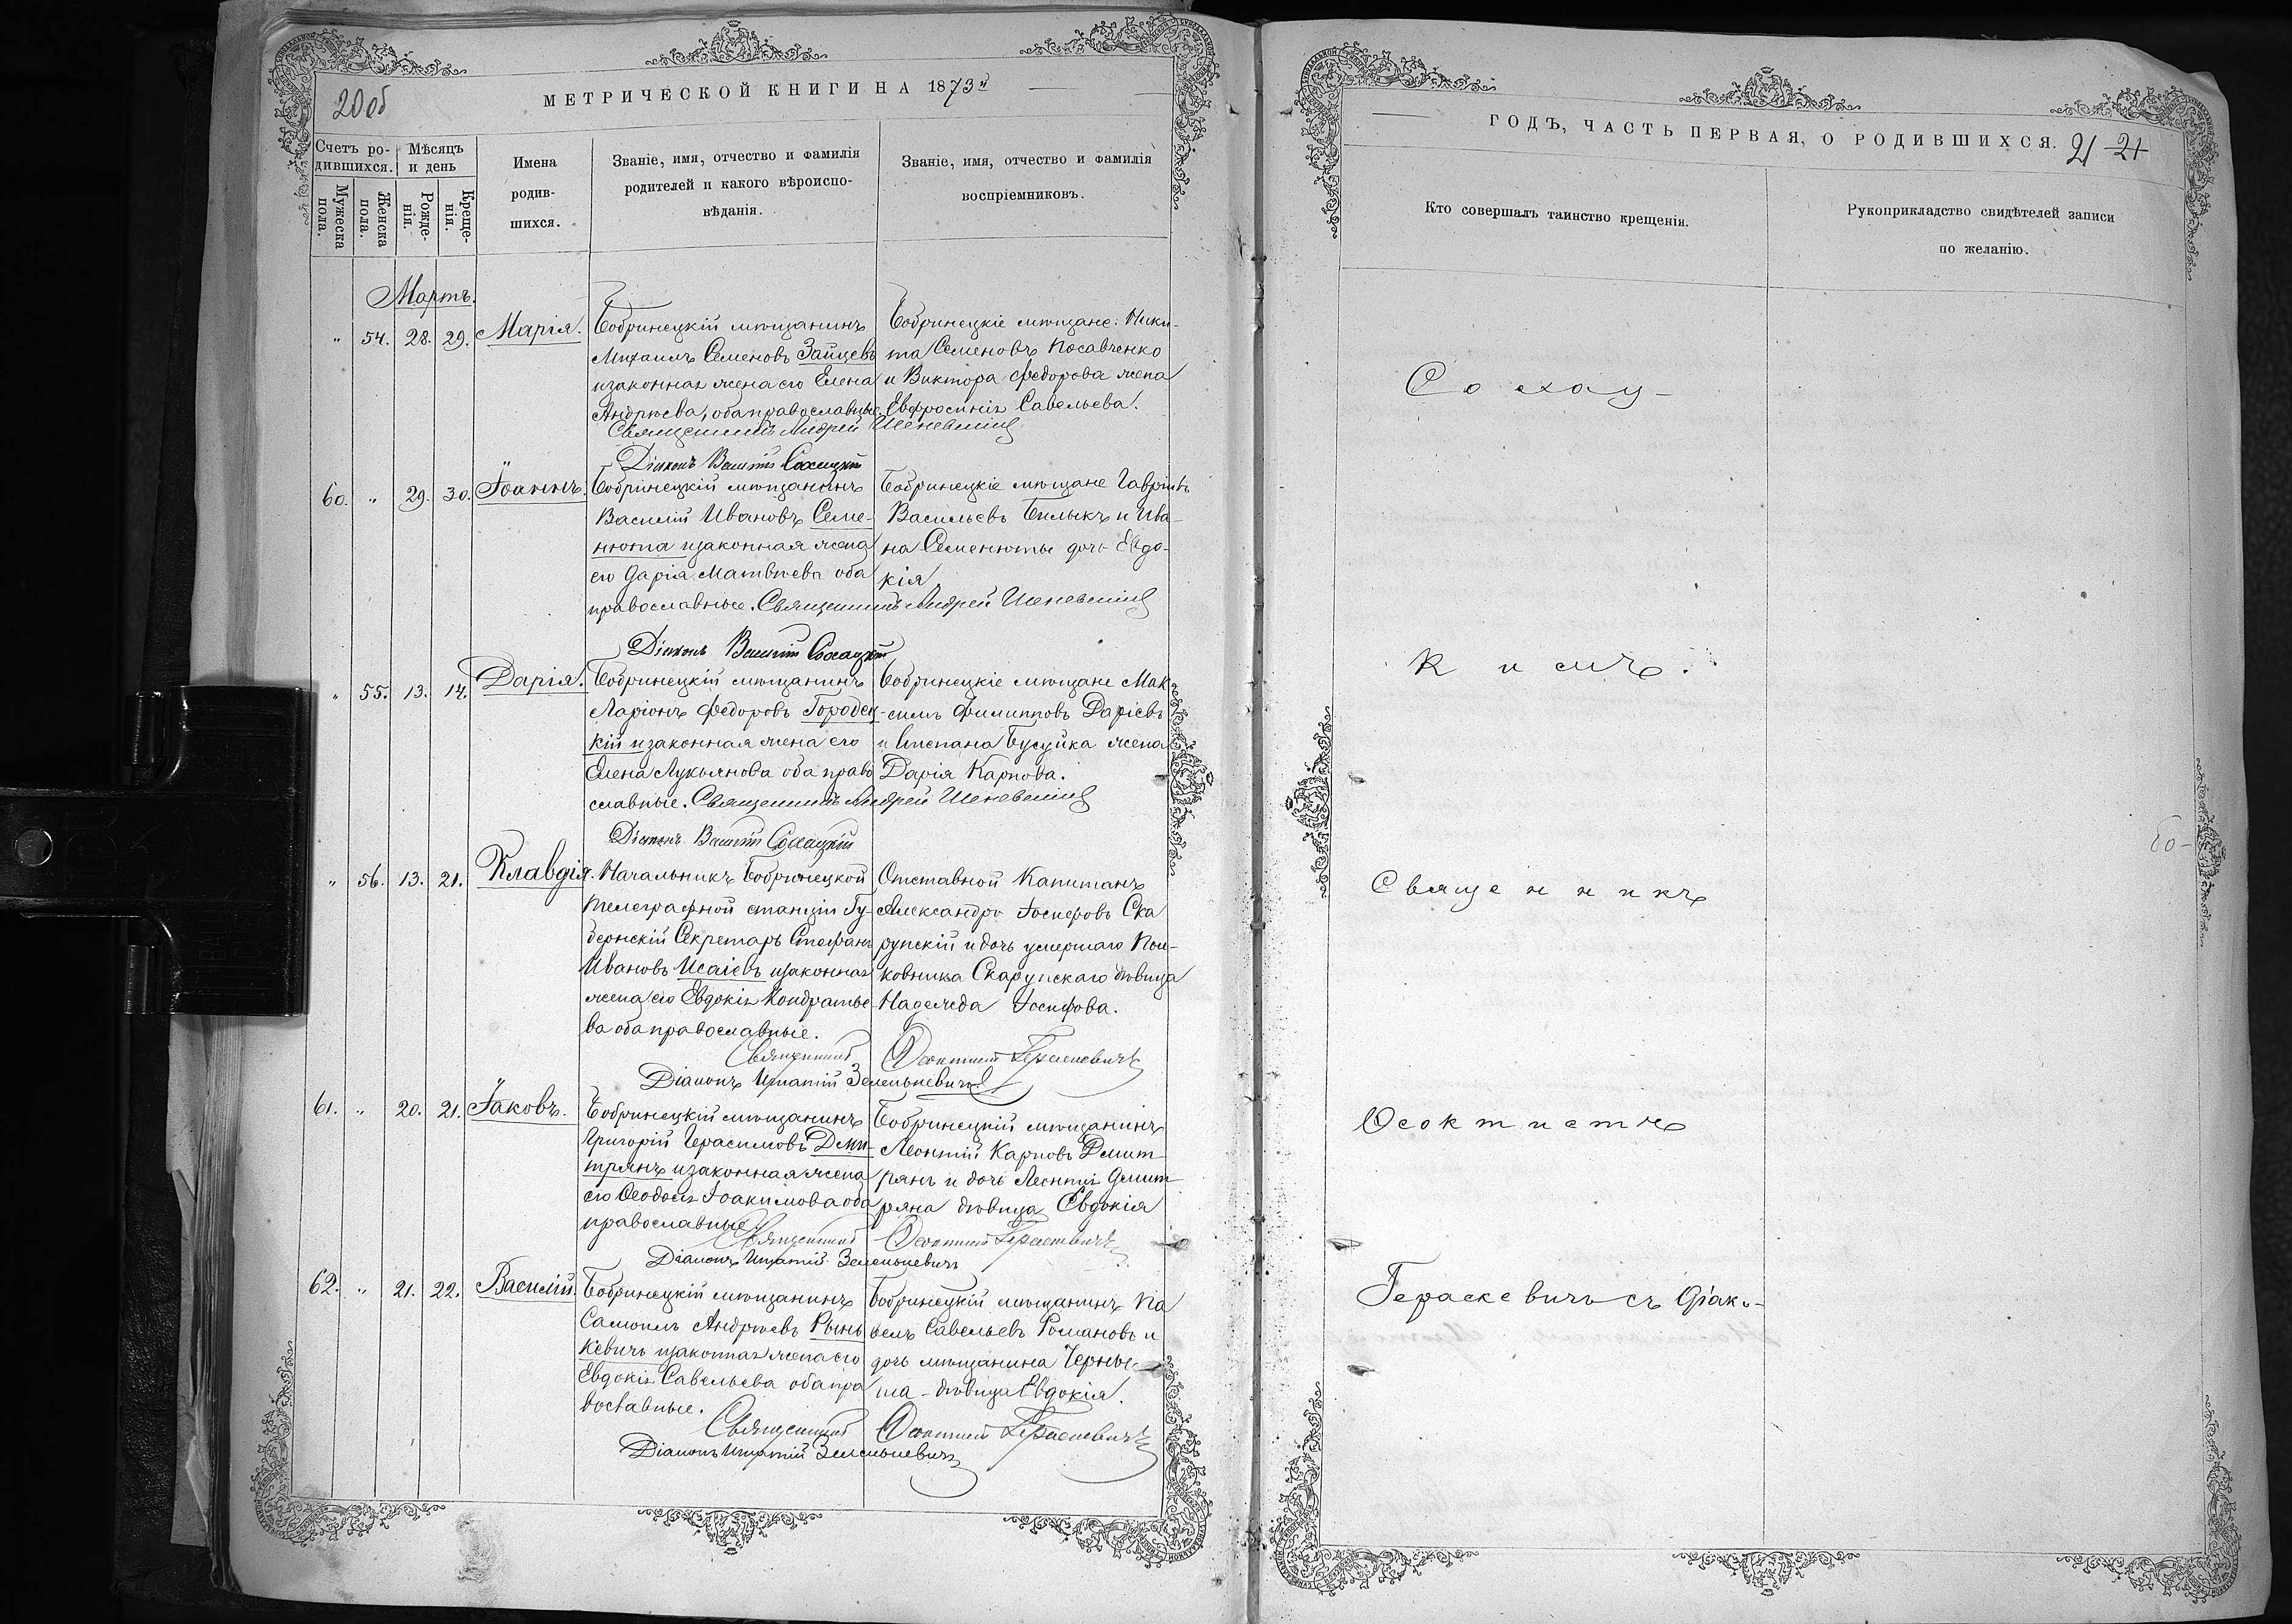 20 об
МЕТРИЧЕСКОЙ КНИГИ НА 1873й
Счетъ ро-
дившихся.
Мужеска
пола.
Женска
пола.
Мѣсяцъ
и день
Рожде-
нія.
Креще-
нія.
Имена
родив-
шихся.
Званіе, имя, отчество и фамилія
родителей и какого вѣроиспо-
вѣданія.
Званіе, имя, отчество и фамилія
воспріемниковъ.
Мартъ.
" 54. 28. 29. Марія.
Бобринецкій мѣщанинъ
Михаилъ Семеновъ Зайцевъ
и законная жена его Елена
Андрѣева, оба православные.
Бобринецкіе мѣщане: Ники-
та Семеновъ Посавченко
и Виктора Федорова жена
Евфросинія Савельева.
Священникъ Андрей
Діаконъ Василій Сохацкій
60. " 29. 30. Іоаннъ.
Бобринецкій мѣщанинъ
Василій Ивановъ Семе-
нюта и законная жена
его Дарія Матвѣева оба
православные.
Бобринецкіе мѣщане Гавріилъ
Васильевъ Билыкъ и Ива-
на Семенюты дочь Евдо-
кія
Священникъ Андрей
Діаконъ Василій Сохацкій
" 55. 13. 14. Дарія.
Бобринецкій мѣщанинъ
Ларіонъ Федоровъ Городец-
кій и законная жена его
Елена Лукьянова оба право
славные.
Бобринецкіе мѣщане Мак-
симъ Филипповъ Даріевъ
и Степана Бусуйка жена
Дарія Карпова.
Священникъ Андрей
Діаконъ Василій Сохацкій
" 56. 13. 21. Клавдія.
Начальникъ Бобринецкой
телеграфной станціи Гу-
бернскій Секретарь Стефанъ
Ивановъ Исаіевъ и законная
жена его Евдокія Кондратье-
ва оба православные.
Отставной Капитанъ
Александръ Іосифовъ Ска
рупскій и дочь умершаго Пол-
ковника Скарупскаго дѣвица
Надежда Іосифова.
Священникъ Феоктистъ Гераскевичъ
Діаконъ Игнатій Зеленкевичъ
61. " 20. 21. Іаковъ.
Бобринецкій мѣщанинъ
Григорій Герасимовъ Дми-
трянъ и законная жена
его Феодосія Іоакимова оба
православные.
Бобринецкій мѣщанинъ
Леонтій Карповъ Дмит-
рянъ и дочь Леонтія Дмит-
ряна дѣвица Евдокія
Священникъ Феоктистъ Гераскевичъ
Діаконъ Игнатій Зеленкевичъ
62. " 21. 22. Василій.
Бобринецкій мѣщанинъ
Самоилъ Андрѣевъ Рынь
кевичъ и законная жена его
Евдокія Савельева оба пра
вославные.
Бобринецкій мѣщанинъ Па
велъ Савельевъ Романовъ и
дочь мѣщанина Черны-
ша - дѣвица Евдокія.
Священникъ Феоктистъ Гераскевичъ
Діаконъ Игнатій Зеленкевичъ
ГОДЪ, ЧАСТЬ ПЕРВАЯ, О РОДИВШИХСЯ. 21 21
Кто совершалъ таинство крещенія.
Рукоприкладство свидѣтелей записи
по желанію.
Сохац-
кимъ.
Священникъ
Феоктистъ
Гераскевичъ съ Діако-